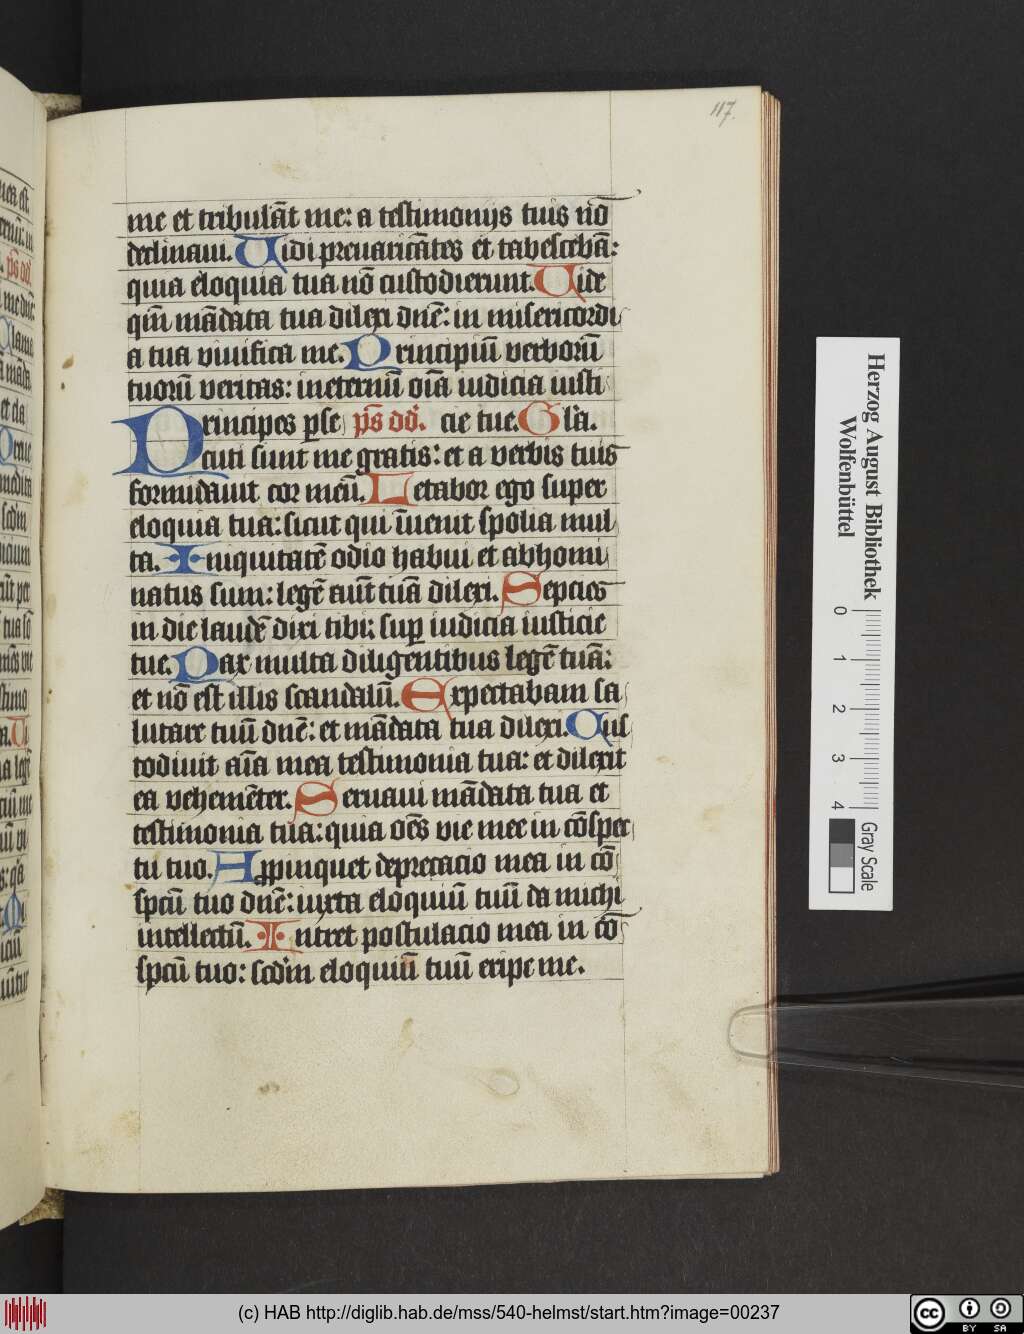 117.
me et tribulāt me: a testimonijs tuis nō
declinaui. Uidi preuaricātes et tabescebā:
quia eloquia tua nō custodierunt. Uide
qm̄ mādata tua dilexi dnē: in misericordi
a tua viuifica me. Principiū verborū
tuorū veritas: ineternū oīa iudicia iusti
Principes pse p̄s dd. cie tue. Gl̄a.
cuti sunt me gratis: et a verbis tuis
formidauit cor meū. Letabor ego super
eloquia tua: sicut qui īuenit spolia mul
ta. Iniquitatē odio habui et abhomi
natus sum: legē aut̄ tuā dilexi. Septies
in die laudē dixi tibi: sup iudicia iusticie
tue. Pax multa diligentibus legē tuā:
et nō est illis scandalū. Expectabam sa
lutare tuū dnē: et mādata tua dilexi. Cus
todiuit aīa mea testimonia tua: et dilexit
ea vehemēter. Seruaui mādata tua et
testimonia tua: quia oēs vie mee in cōspec
tu tuo. Appinquet deprecacio mea in cō
spcū tuo dnē: iuxta eloquiū tuū da michi
intellectū. Intret postulacio mea in cō
spcū tuo: scdm eloquiū tuū eripe me.
Herzog August Bibliothek
Wolfenbüttel
0 1 2 3 4
Gray Scale
(c) HAB http://diglib.hab.de/mss/540-helmst/start.htm?image=00237
cc BY SA